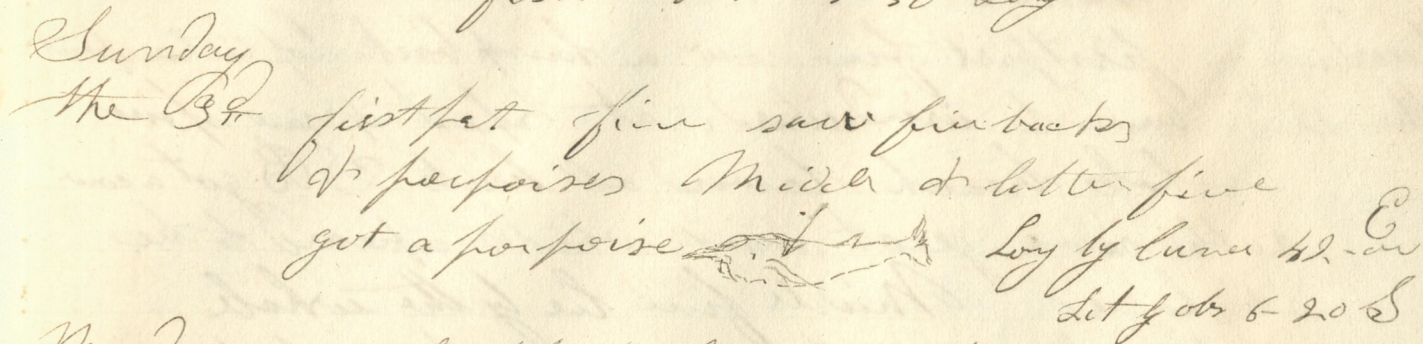 Sunday
the 3d firstpat fine saw finbacks
& porpoises Middle & latter fine
got a porpoise Log by luner 42- E
Lat by obs 6-20 S